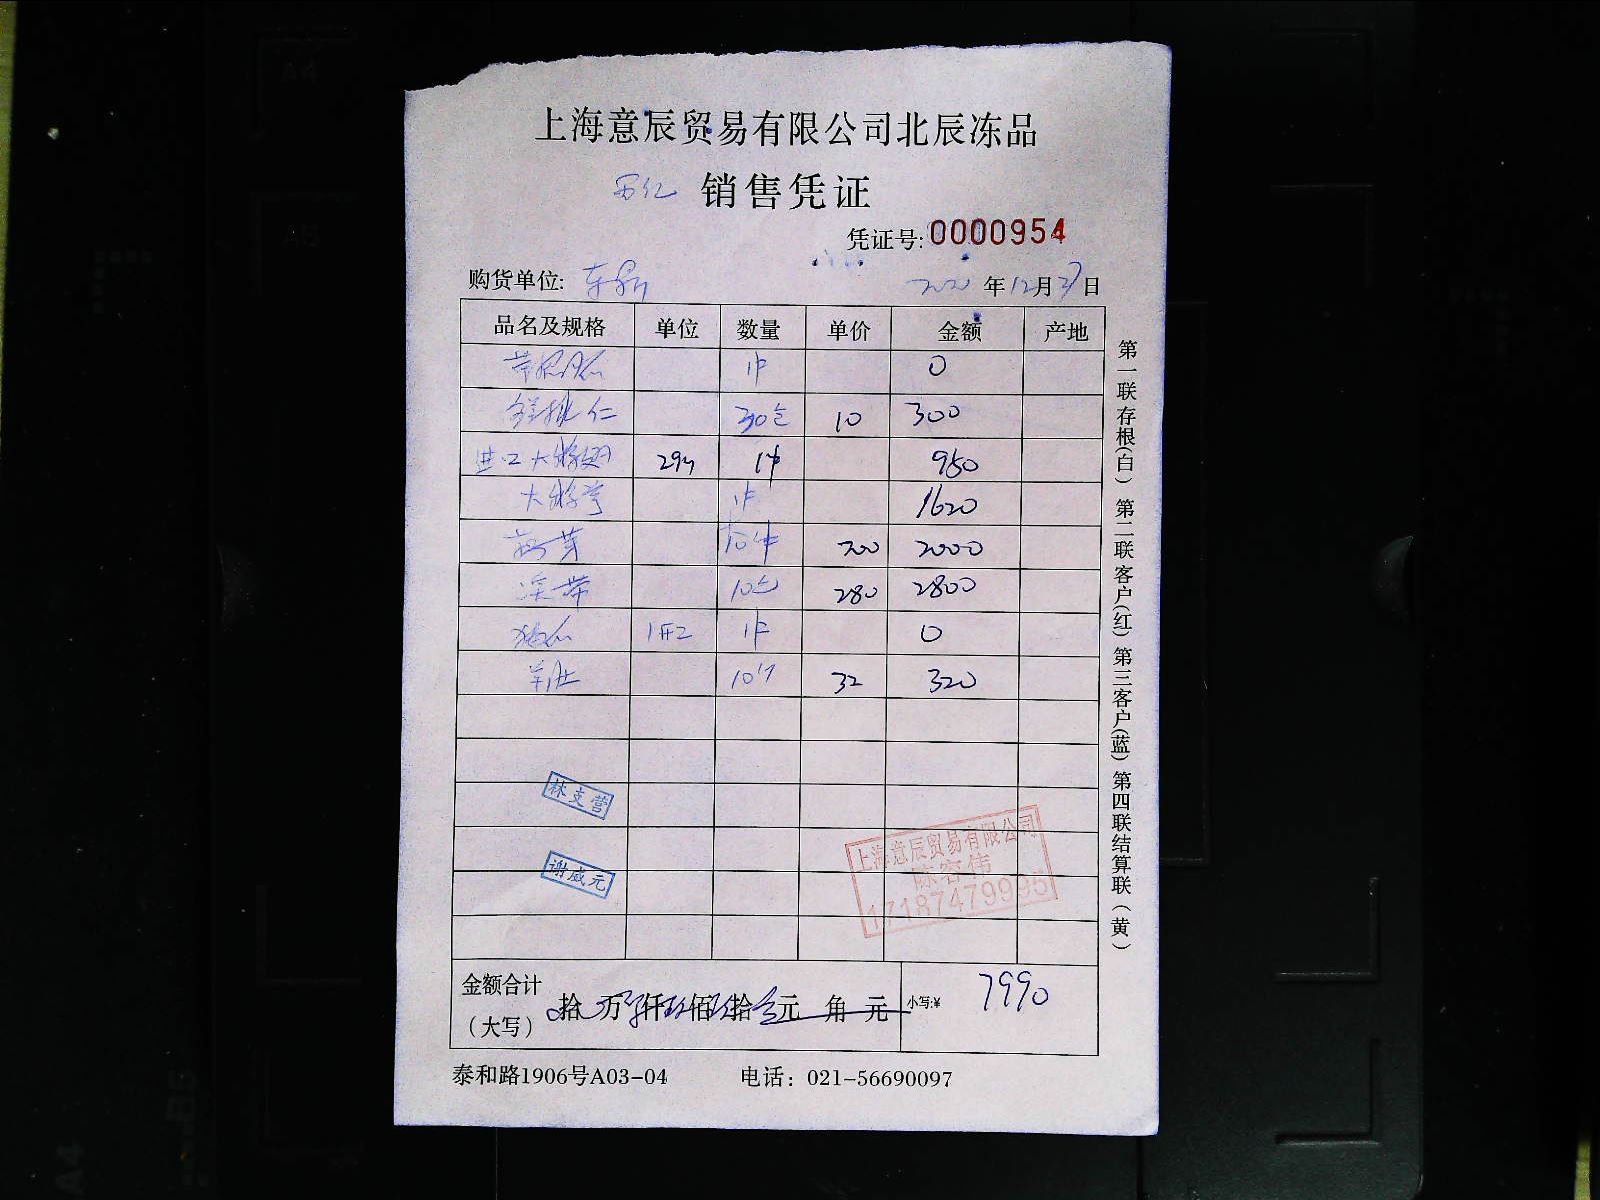 上海意辰贸易有限公司北辰冻品
销售凭证
凭证号:0000954
购货单位: 年12月27日
品名及规格 单位 数量 单价 金额 产地
1件 0
仁 30包 10 300
进口大 1件 950
大 1件 1620
芽 10件 200 2000
带 10包 280 2800
1件 0
羊肚 10个 32 320
林支营
谢威元
上海意辰贸易有限公司
陈容伟
17187479995
金额合计
(大写) 拾 万 仟 佰 拾 元 角 元 小写:¥ 7990
泰和路1906号A03-04 电话：021-56690097
第一联存根(白) 第二联客户(红) 第三客户(蓝) 第四联结算联(黄)